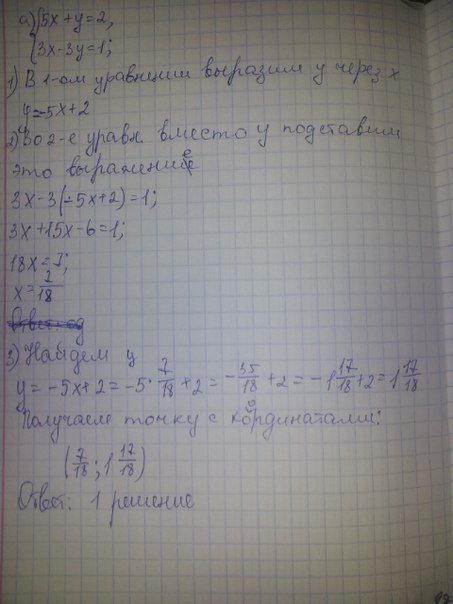 а) {5x+y=2,
{3x-3y=1;
1) В 1-ом уравнении выразим y через x
y=-5x+2
2) Во 2-е уравн. вместо y подставим
это выражение
3x-3(-5x+2)=1;
3x+15x-6=1;
18x=7;
x=7/18
3) Найдем y
y=-5x+2=-5·7/18+2=-35/18+2=-1 17/18+2=1 17/18
Получаем точку с координатами:
(7/18; 1 17/18)
Ответ: 1 решение